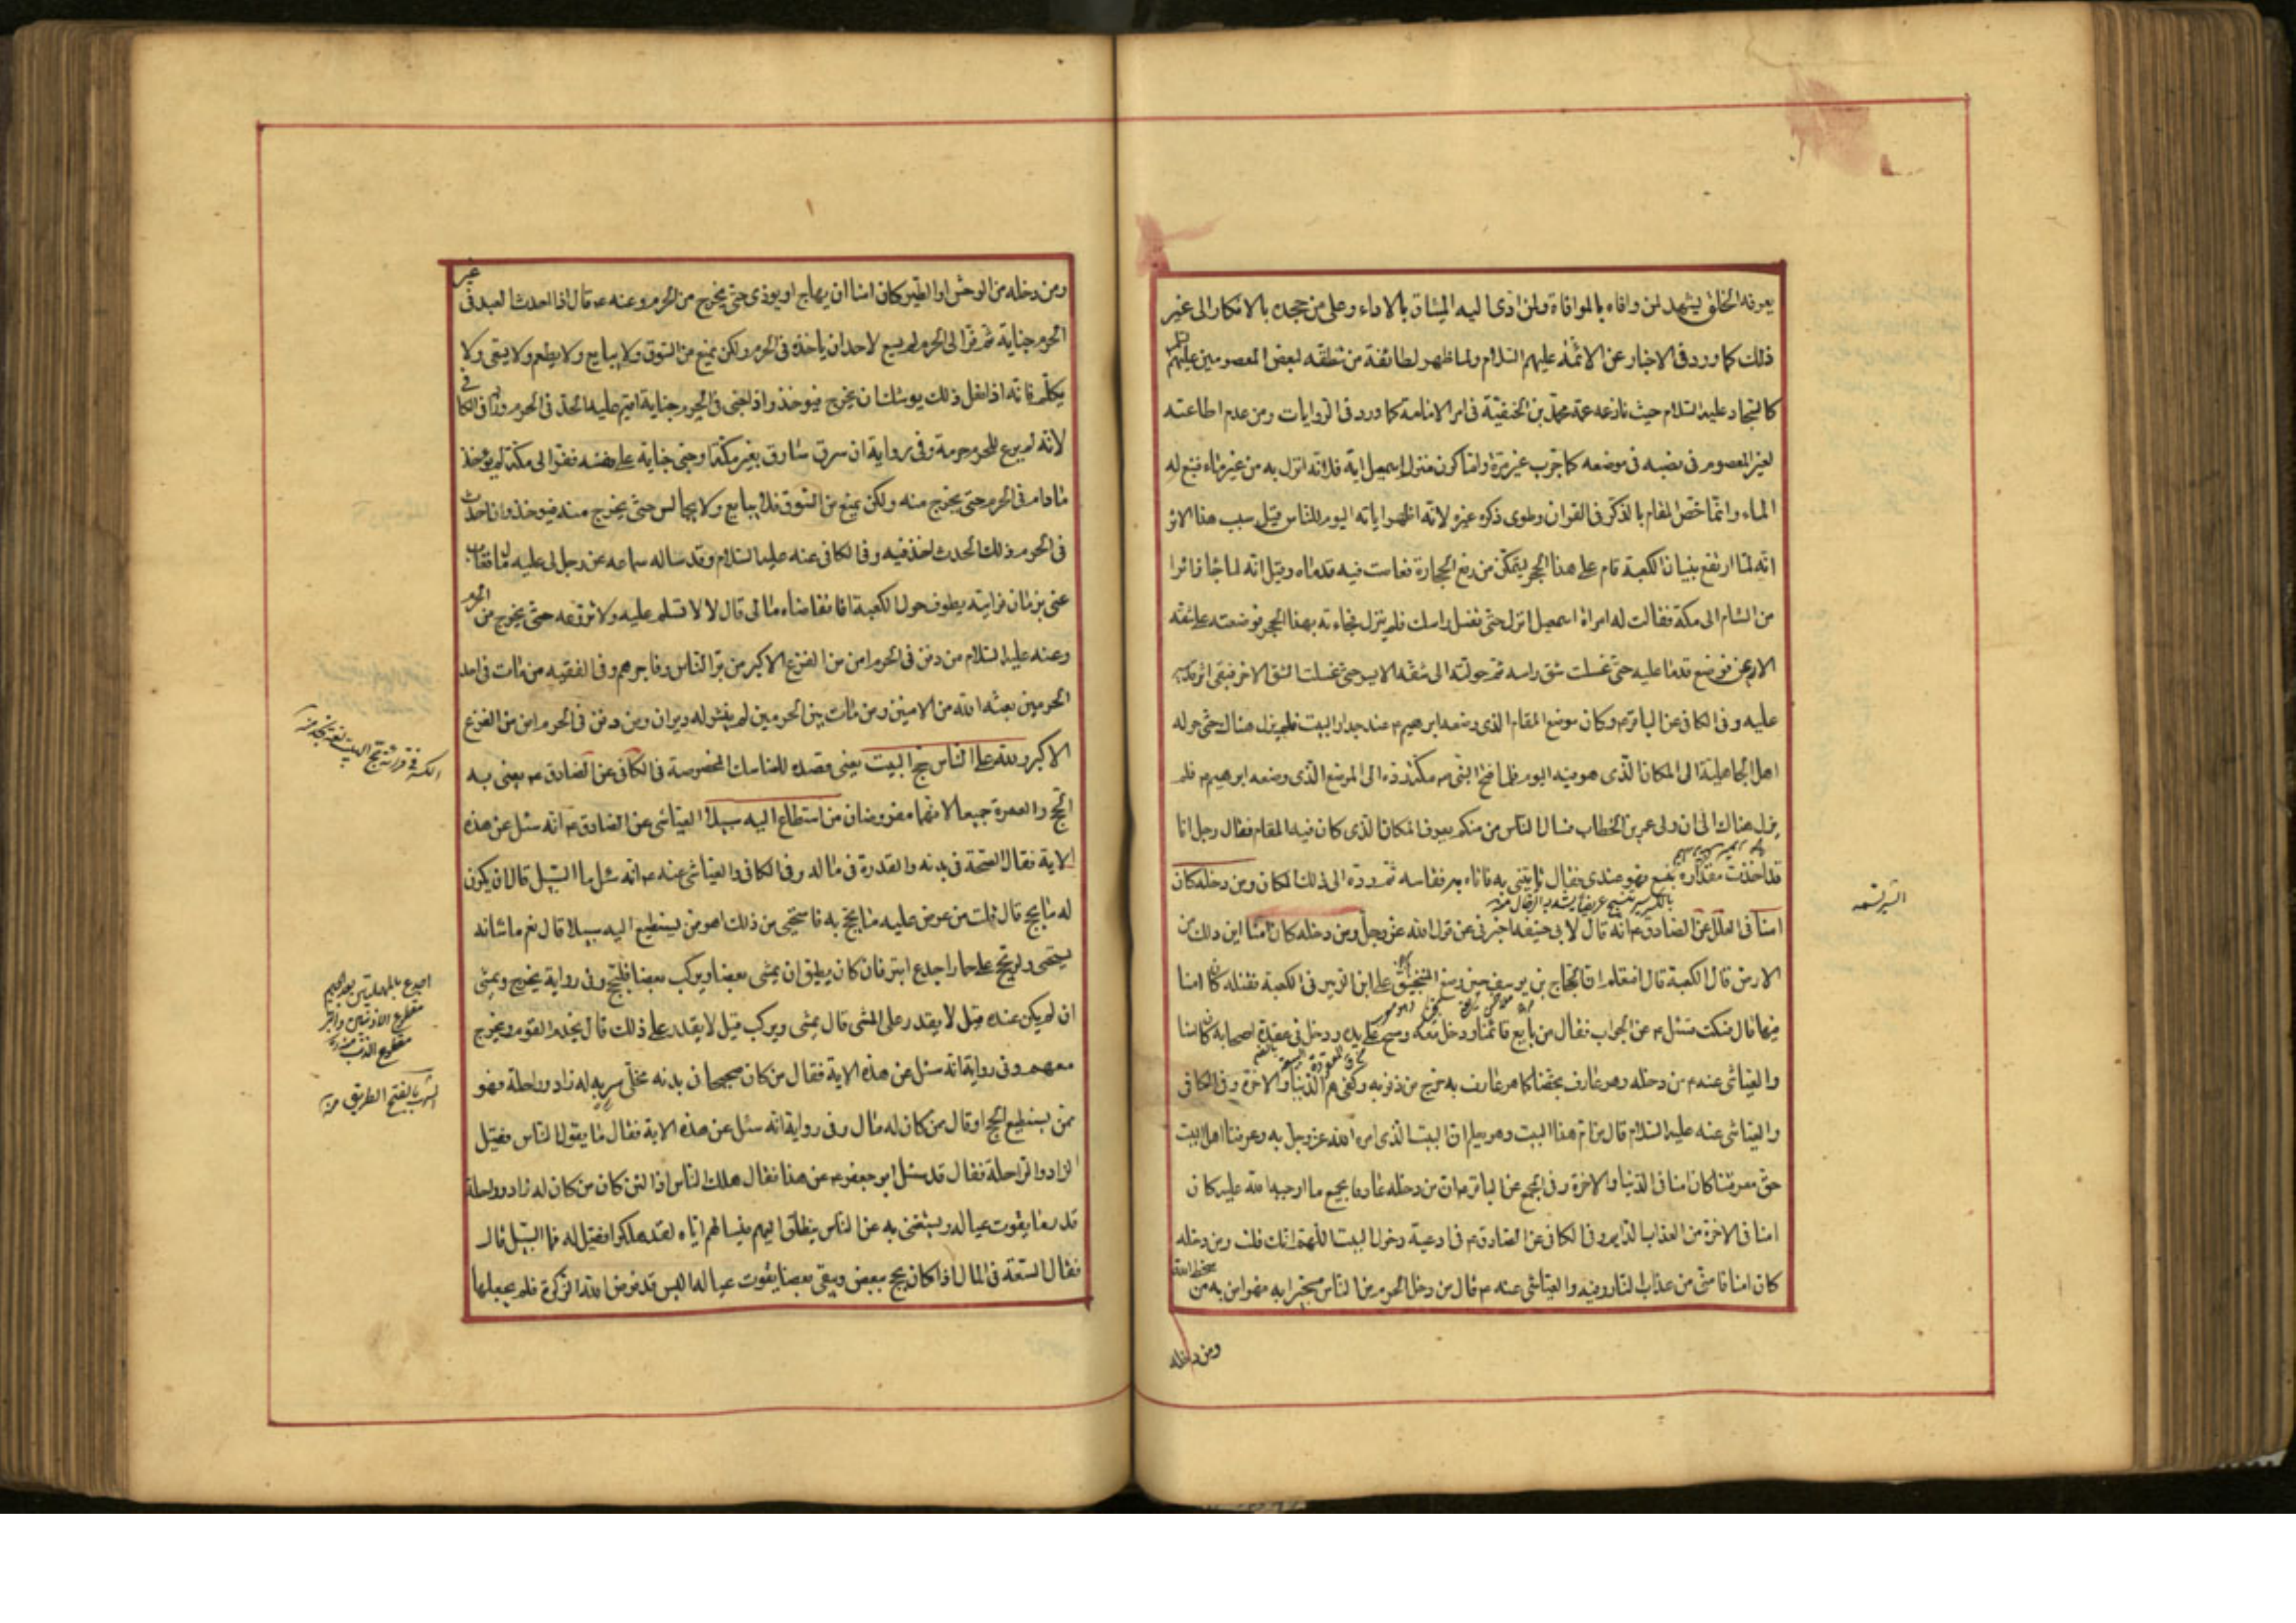 يعرفه الخلق يشهد لمن وافاه بالموافاة ولمن ادى اليه الميثاق بالاداء وعلى من جحده بالانكار الى غير
ذلك كما ورد في الاخبار عن الائمة عليهم السلام ولما ظهر لطائفة من نطقه لبعض المعصومين عليهم السلام
كالسجاد عليه السلام حيث نازعه عمه محمد بن الحنفية في امر الامامة كما ورد في الروايات ومن عدم اطاعته
لغير المعصوم في نصبه في موضعه كما جرب غير مرة واما كون منزل اسمعيل اية فلانه انزل به من غير ماء فنبع له
الماء وانما خص المقام بالذكر في القران وطوى ذكر غيره لانه اظهر اياته اليوم للناس قيل سبب هذا الاثر
انه لما ارتفع بنيان الكعبة قام على هذا الحجر ليتمكن من رفع الحجارة فغاصت فيه قدماه وقيل انه لما جا زائرا
من الشام الى مكة فقالت له امراة اسمعيل انزل حتى نغسل راسك فلم ينزل فجاءته بهذا الحجر فوضعته على شقه
الايمن فوضع قدمه عليه حتى غسلت شق راسه ثم حولته الى شقه الايسر حتى غسلت الشق الاخر فبقى اثر قدميه
عليه وفي الكافي عن الباقر م وكان موضع المقام الذي وضعه ابرهيم م عند جدار البيت فلم يزل هناك حتى حوله
اهل الجاهلية الى المكان الذي هو فيه اليوم فلما فتح النبي ص مكة رده الى الموضع الذي وضعه ابرهيم م فلم
يزل هناك الى ان ولى عمر بن الخطاب فسال الناس من منكم يعرف المكان الذي كان فيه المقام فقال رجل انا
قد اخذت مقداره بنسع فهو عندي فقال تاتيني به فاتاه به فقاسه ثم رده الى ذلك المكان ومن دخله كان
النسع تسمه
امنا في العلل عن الصادق م انه قال لابي حنيفة اخبرني عن قول الله عز وجل ومن دخله كان امنا اين ذلك من
الارض قال الكعبة قال افتعلم ان الحجاج بن يوسف حين وضع المنجنيق على ابن الزبير في الكعبة فقتله كان امنا
فيها قال فسكت فسئل م عن الجواب فقال من بايع قائمنا ودخل معه ومسح على يده ودخل في عقدة اصحابه كان امنا
والعياشي عنه م من دخله وهو عارف بحقنا كما هو عارف به خرج من ذنوبه وكفى هم الدنيا والاخرة وفي الكافي
والعياشي عنه عليه السلام قال من ام هذا البيت وهو يعلم ان البيت الذي امر الله عز وجل به وعرفنا اهل البيت
حق معرفتنا كان امنا في الدنيا والاخرة وفي المجمع عن الباقر م ان من دخله عارفا بجميع ما اوجبه الله عليه كان
امنا في الاخرة من العذاب الدايم وفي الكافي عن الصادق م في ادعية دخول البيت اللهم انك قلت ومن دخله
كان امنا فامني من عذاب النار وفيه والعياشي عنه م قال من دخل الحرم من الناس مستجيرا به فهو امن به من سخط الله
ومن دخله
ومن دخله من الوحش او الطير كان امنا ان يهاج او يوذى حتى يخرج من الحرم وعنه م قال اذا احدث العبد في غير
الحرم جناية ثم فر الى الحرم لم يسع لاحد ان ياخذه في الحرم ولكن يمنع من السوق ولا يبايع ولا يطعم ولا يسقى ولا
يكلم فانه اذا فعل ذلك يوشك ان يخرج فيوخذ واذا جنى في الحرم جناية اقيم عليه الحد في الحرم وزاد في الكافي
لانه لم يرع للحرم حرمة وفي رواية ان سرق سارق بغير مكة او جنى جناية على نفسه ففر الى مكة لم يؤخذ
مادام في الحرم حتى يخرج منه ولكن يمنع من السوق فلا يبايع ولا يجالس حتى يخرج منه فيوخذ وان احدث
في الحرم ذلك الحدث اخذ فيه وفي الكافي عنه عليه السلام وقد ساله سماعة عن رجل لي عليه مال فغاب
عني بزمان فرايته يطوف حول الكعبة افاتقاضاه مالي قال لا لا تسلم عليه ولا تروعه حتى يخرج من الحرم
وعنه عليه السلام من دفن في الحرم امن من الفزع الاكبر من بر الناس وفاجرهم وفي الفقيه من مات في احد
الحرمين بعثه الله من الامنين ومن مات بين الحرمين لم ينشر له ديوان ومن دفن في الحرم امن من الفزع
الاكبر ولله على الناس حج البيت يعني قصده للمناسك المخصوصة في الكافي عن الصادق م يعني به
الحج والعمرة جميعا لانهما مفروضان من استطاع اليه سبيلا العياشي عن الصادق م انه سئل عن هذه
الاية فقال الصحة في بدنه والقدرة في ماله وفي الكافي والعياشي عنه م انه سئل ما السبيل قال ان يكون
له ما يحج قال قلت من عرض عليه ما يحج به فاستحيى من ذلك اهو ممن يستطيع اليه سبيلا قال نعم ما شانه
يستحيى ولو يحج على حمار اجدع ابتر فان كان يطيق ان يمشى بعضا ويركب بعضا فليحج وفي رواية يخرج ويمشى
اجدع بالمهملتين بعد الجيم
مقطوع الاذنين وابتر
مقطوع الذنب منه
ان لم يكن عنده قيل لا يقدر على المشى قال يمشى ويركب قيل لا يقدر على ذلك قال يخدم القوم ويخرج
معهم وفي رواية انه سئل عن هذه الاية فقال من كان صحيحا في بدنه مخلى سربه له زاد وراحلة فهو
السرب بالفتح الطريق منه
ممن يستطيع الحج او قال من كان له مال وفي رواية انه سئل عن هذه الاية فقال ما يقول الناس فقيل
الزاد والراحلة فقال قد سئل ابو جعفر م عن هذا فقال هلك الناس اذا لئن كان من كان له زاد وراحلة
قدر ما يقوت عياله ويستغنى به عن الناس ينطلق اليهم فيسالهم اياه لقد هلكوا فقيل له فما السبيل قال
فقال السعة في المال اذا كان يحج ببعض ويبقى بعضا يقوت عياله اليس قد فرض الله الزكوة فلم يجعلها